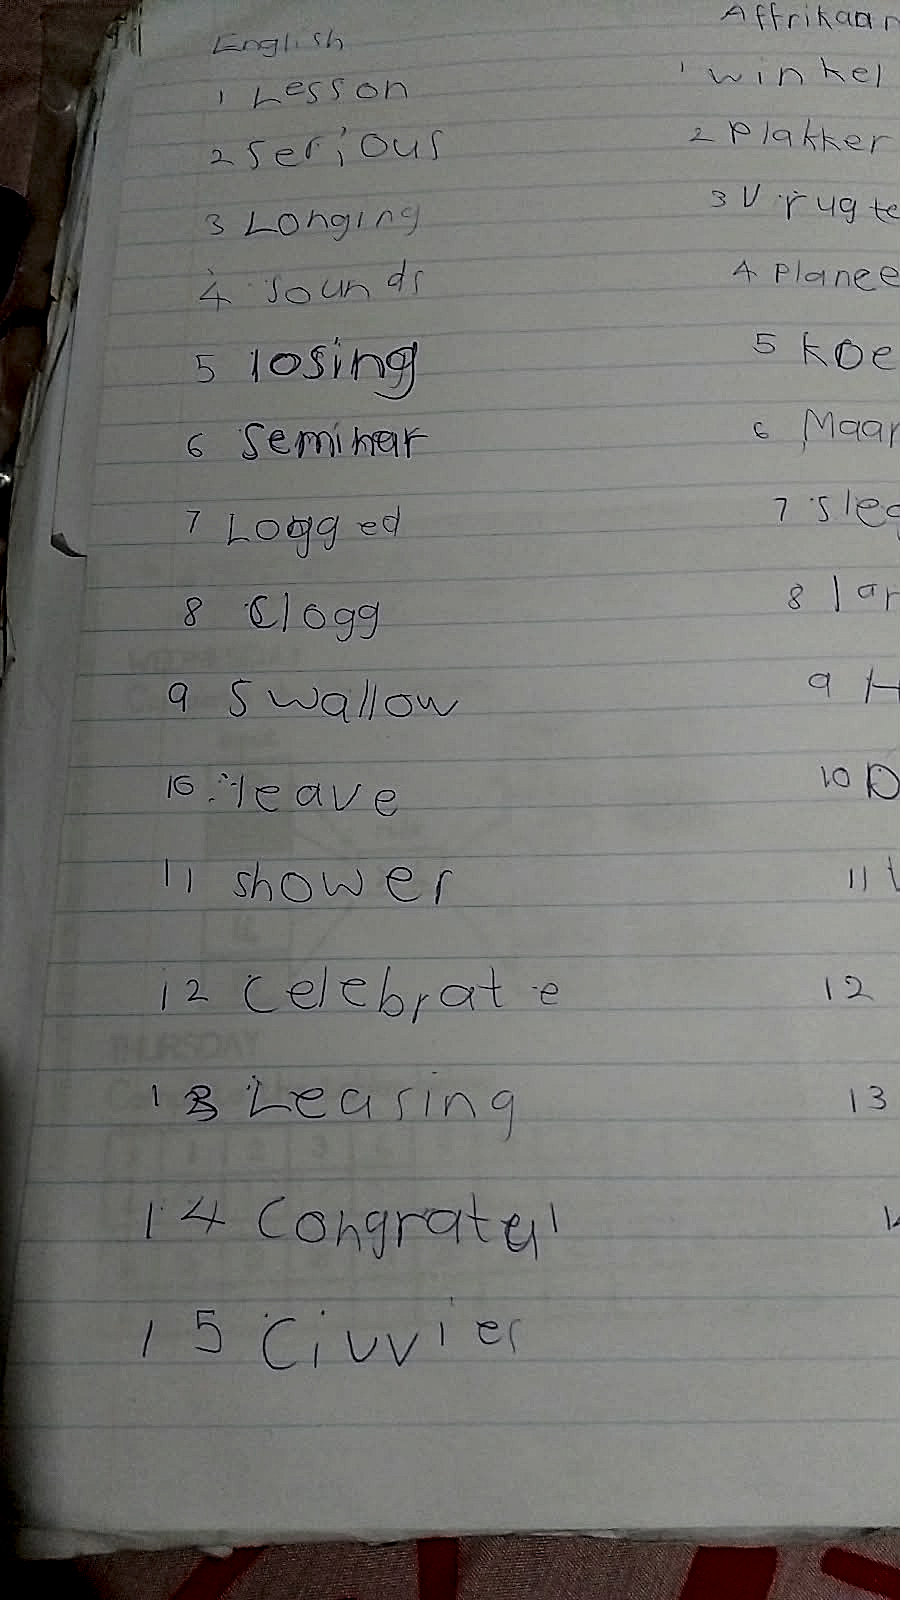 English Affrikaan
1 Lesson 1 winkel
2 Serious 2 Plakker
3 Longing 3 Vrugte
4 Sounds 4 Planee
5 losing 5 koe
6 Seminar 6 Maar
7 Logged 7 Sleg
8 Clogg 8 lar
9 Swallow 9 H
10 leave 10 D
11 shower 11
12 Celebrate 12
13 Leasing 13
14
15 Civvies